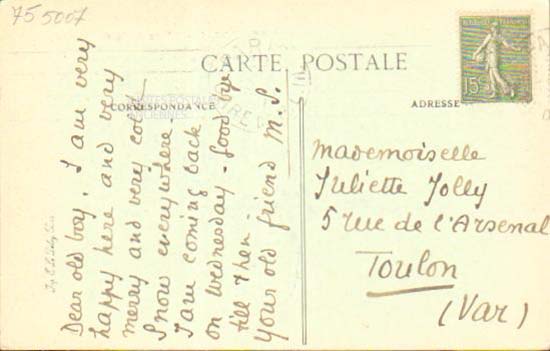 75 5007
CARTE POSTALE
CORRESPONDANCE
ADRESSE
CARTES POSTALES
ANCIENNES
RÉPUBLIQUE FRANÇAISE
15c
Dear old boy, I am very
happy here and very
merry and very cold
Snow everywhere.
I am coming back
on Wednesday - Good bye
till then -
Your old friend M.S.
Mademoiselle
Juliette Jolly
5 rue de l'Arsenal
Toulon
(Var)